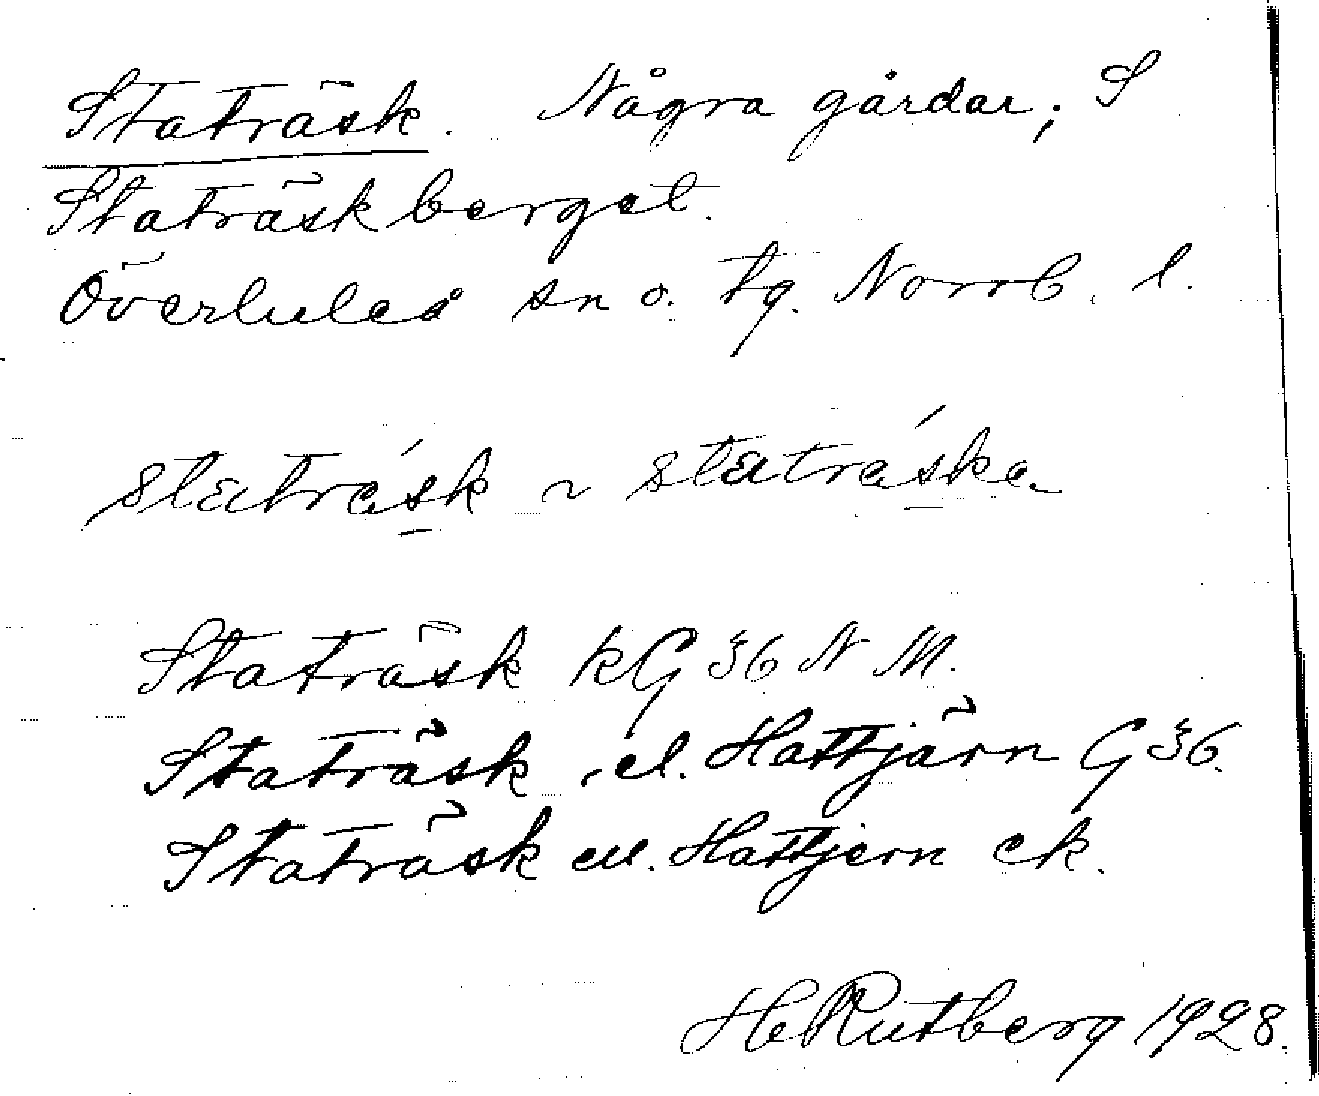 Staträsk. Några gårdar; S
Staträskberget.
Överluleå sn o. tg. Norrb. l.
statrásk ~ statráska
Staträsk kG 36 N M.
Staträsk el. Hattjärn G 36.
Staträsk ell. Hattjern ek.
H Rutberg 1928.